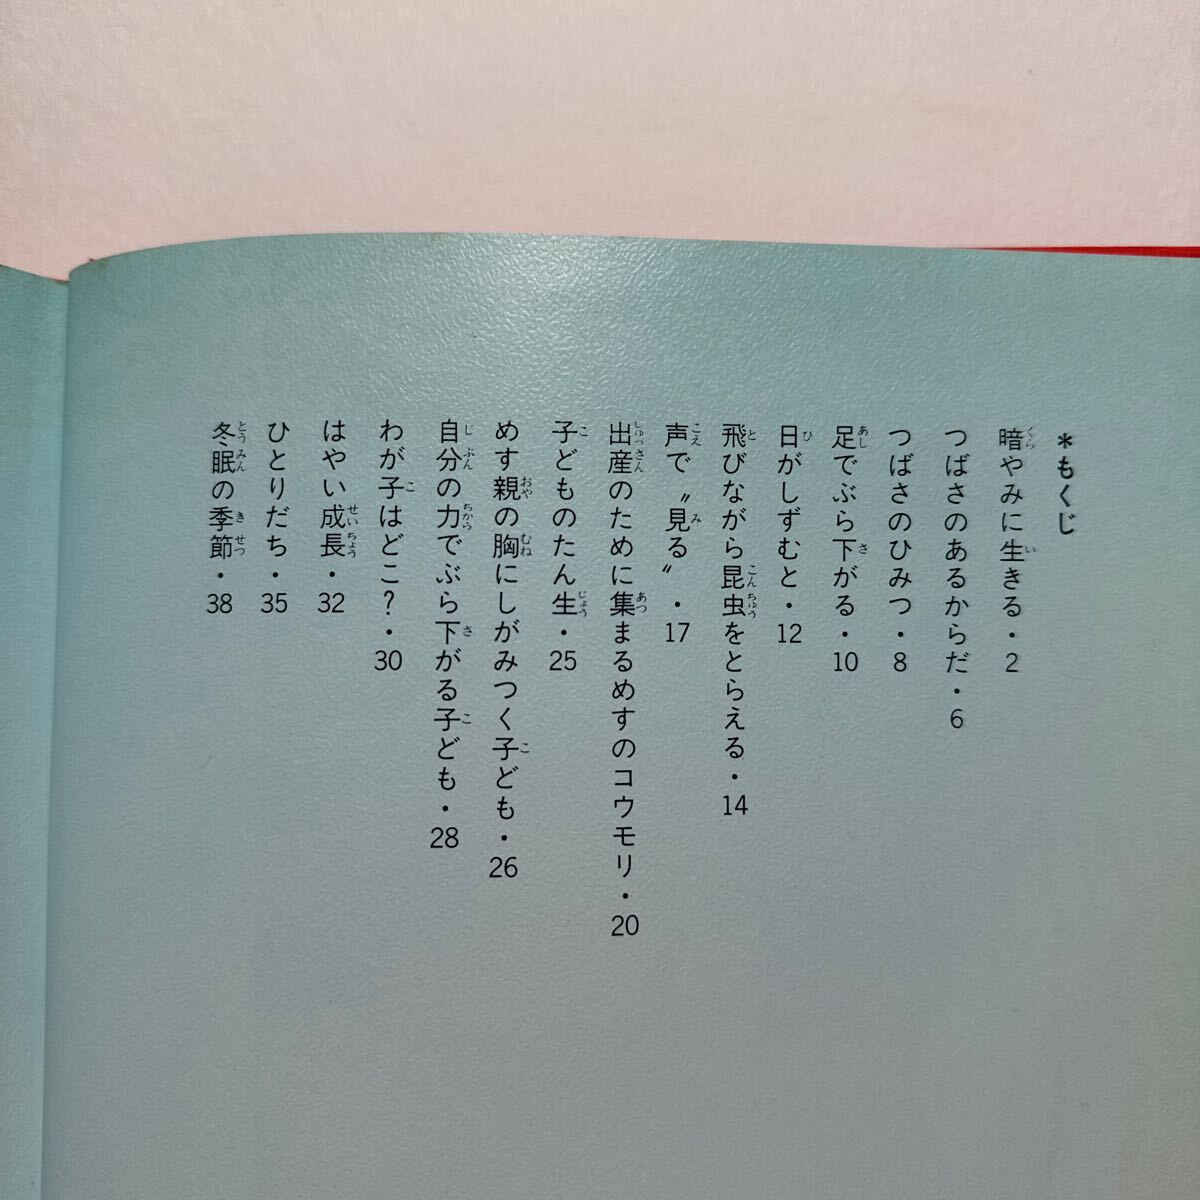 ＊もくじ
暗やみに生きる・2
つばさのあるからだ・6
つばさのひみつ・8
足でぶら下がる・10
日がしずむと・12
飛びながら昆虫をとらえる・14
声で〝見る〟・17
出産のために集まるめすのコウモリ・20
子どものたん生・25
めす親の胸にしがみつく子ども・26
自分の力でぶら下がる子ども・28
わが子はどこ？・30
はやい成長・32
ひとりだち・35
冬眠の季節・38